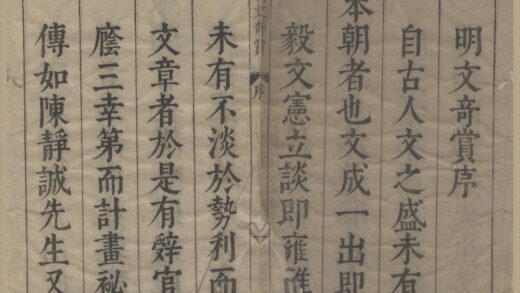 明文奇賞序
自古人文之盛未有
本朝者也文成一出即
毅文憲立談即雍
文奇賞 序
未有不淡於勢利而
文章者於是有辭官
廕三幸第而計畫祕
傳如陳靜誠先生又